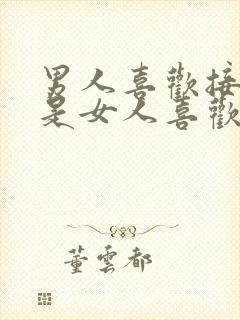 男人喜歡接
是女人喜歡
董雲都